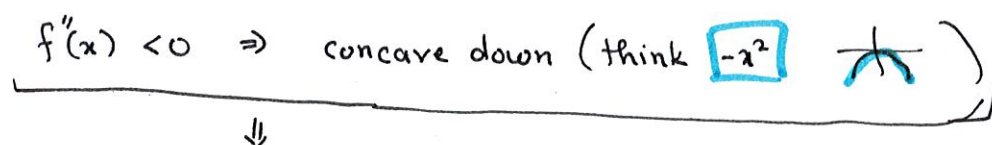 f''(x) < 0 ⇒ concave down (think -x² )
⇓